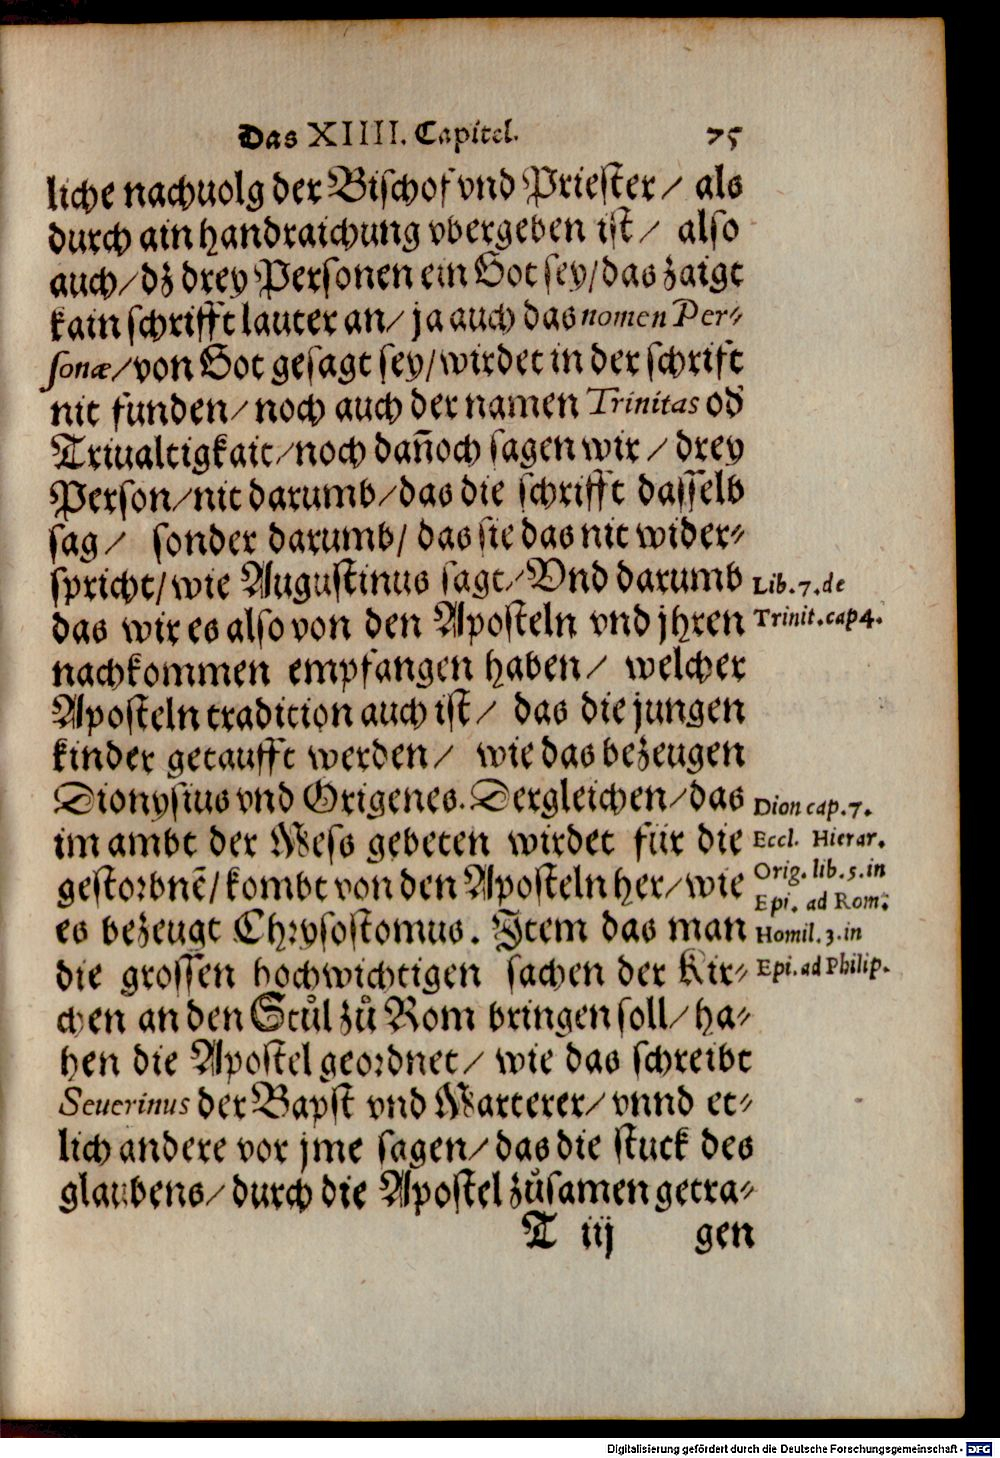 Das XIIII. Capitel. 75
liche nachuolg der Bischof vnd Priester/ als
durch ain handraichung vbergeben ist/ also
auch/ dz drey Personen ein Got sey/ das zaigt
kain schrifft lauter an/ ja auch das nomen Per-
sonæ/ von Got gesagt sey/ wirdet in der schrift
nit funden/ noch auch der namen Trinitas od̕
Triualtigkait/ noch dañoch sagen wir/ drey
Person/ nit darumb/ das die schrifft dasselb
sag/ sonder darumb/ das sie das nit wider-
spricht/ wie Augustinus sagt/ Vnd darumb
Lib. 7. de
das wir es also von den Aposteln vnd jhren
Trinit. cap 4.
nachkommen empfangen haben/ welcher
Aposteln tradition auch ist/ das die jungen
kinder getaufft werden/ wie das bezeugen
Dionysius vnd Origenes. Dergleichen/ das
Dion cap. 7.
im ambt der Mess gebeten wirdet für die
Eccl. Hierar.
gestorbnē/ kombt von den Aposteln her/ wie
Orig. lib. 5. in
Epi. ad Rom.
es bezeugt Chrysostomus. Item das man
Homil. 3. in
die grossen hochwichtigen sachen der Kir-
Epi. ad Philip.
chen an den Stůl zů Rom bringen soll/ ha-
hen die Apostel geordnet/ wie das schreibt
Seuerinus der Bapst vnd Marterer/ vnnd et-
lich andere vor jme sagen/ das die stuck des
glaubens/ durch die Apostel zůsamen getra-
T iij gen
Digitalisierung gefördert durch die Deutsche Forschungsgemeinschaft - DFG